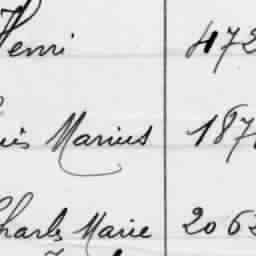 Henri 472
Marius 187
Charles Marie 2062